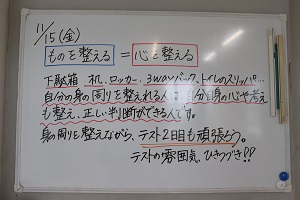 11/15(金)
ものを整える = 心を整える
下駄箱、机、ロッカー、3wayバック、トイレのスリッパ…
自分の身の周りを整えれる人は、自分自身の心や考え
も整え、正しい判断ができる人です。
身の周りを整えながら、テスト2日目も頑張ろう。
テストの雰囲気ひきつづき!!